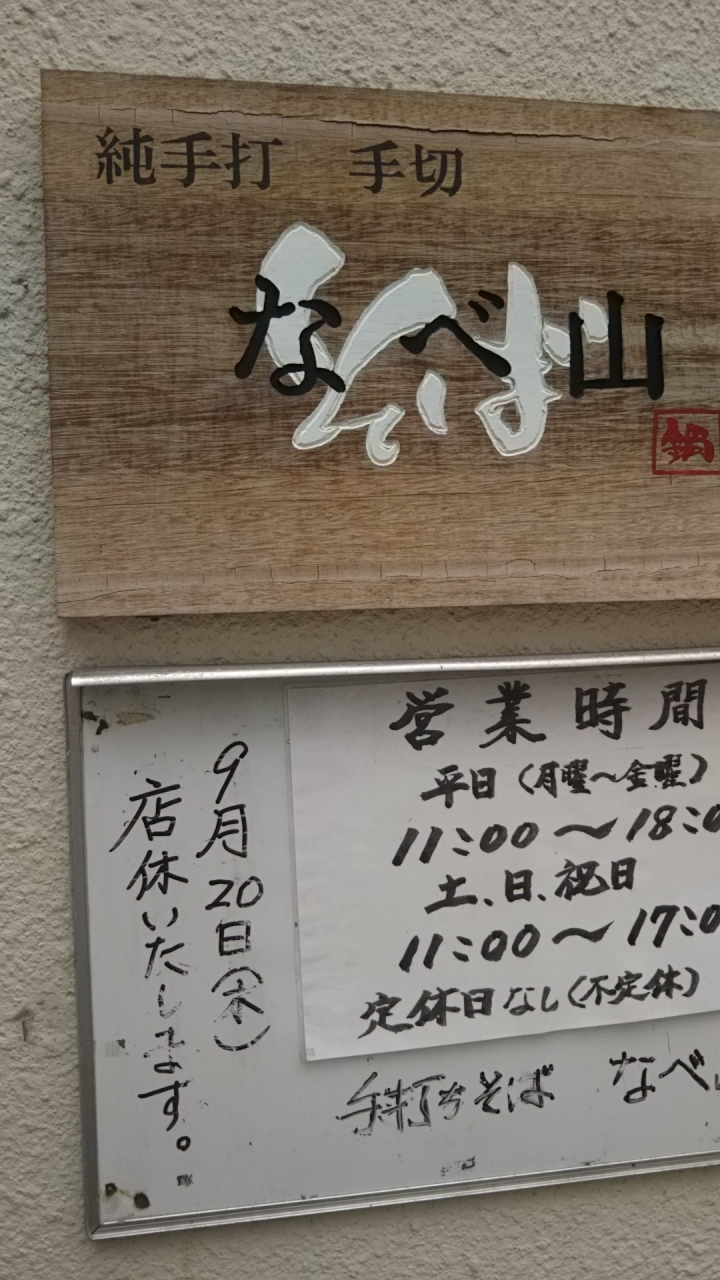 純手打 手切
なべ山
そば
鍋
営業時間
平日（月曜～金曜）
11:00～18:0
土、日、祝日
11:00～17:0
定休日なし（不定休）
9月20日（木）
店休いたします。
手打ちそば なべ山